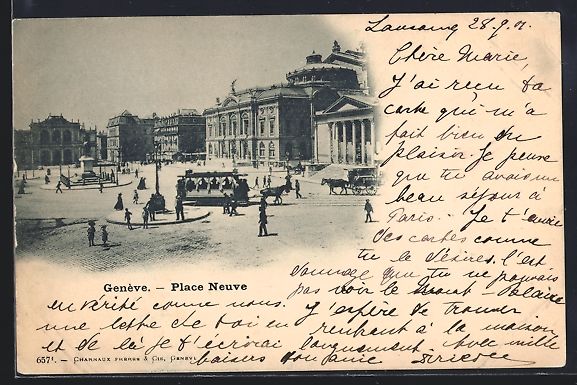 Lausanne 28.9.01.
Chère Marie,
J'ai reçu ta
carte qui m'a
fait bien du
plaisir. Je pense
que tu avais un
beau séjour à
Paris. Je t'envoie
des cartes comme
tu le désires. C'est
dommage que tu ne pouvais
pas voir le Mont-Blanc
Genève. - Place Neuve
en vérité comme nous. J'espère de trouver
une lettre de toi en rentrant à la maison
et de là je t'écrirai longuement. Avec mille
baisers ton amie
657¹. - CHARNAUX FRÈRES & CIE, GENÈVE